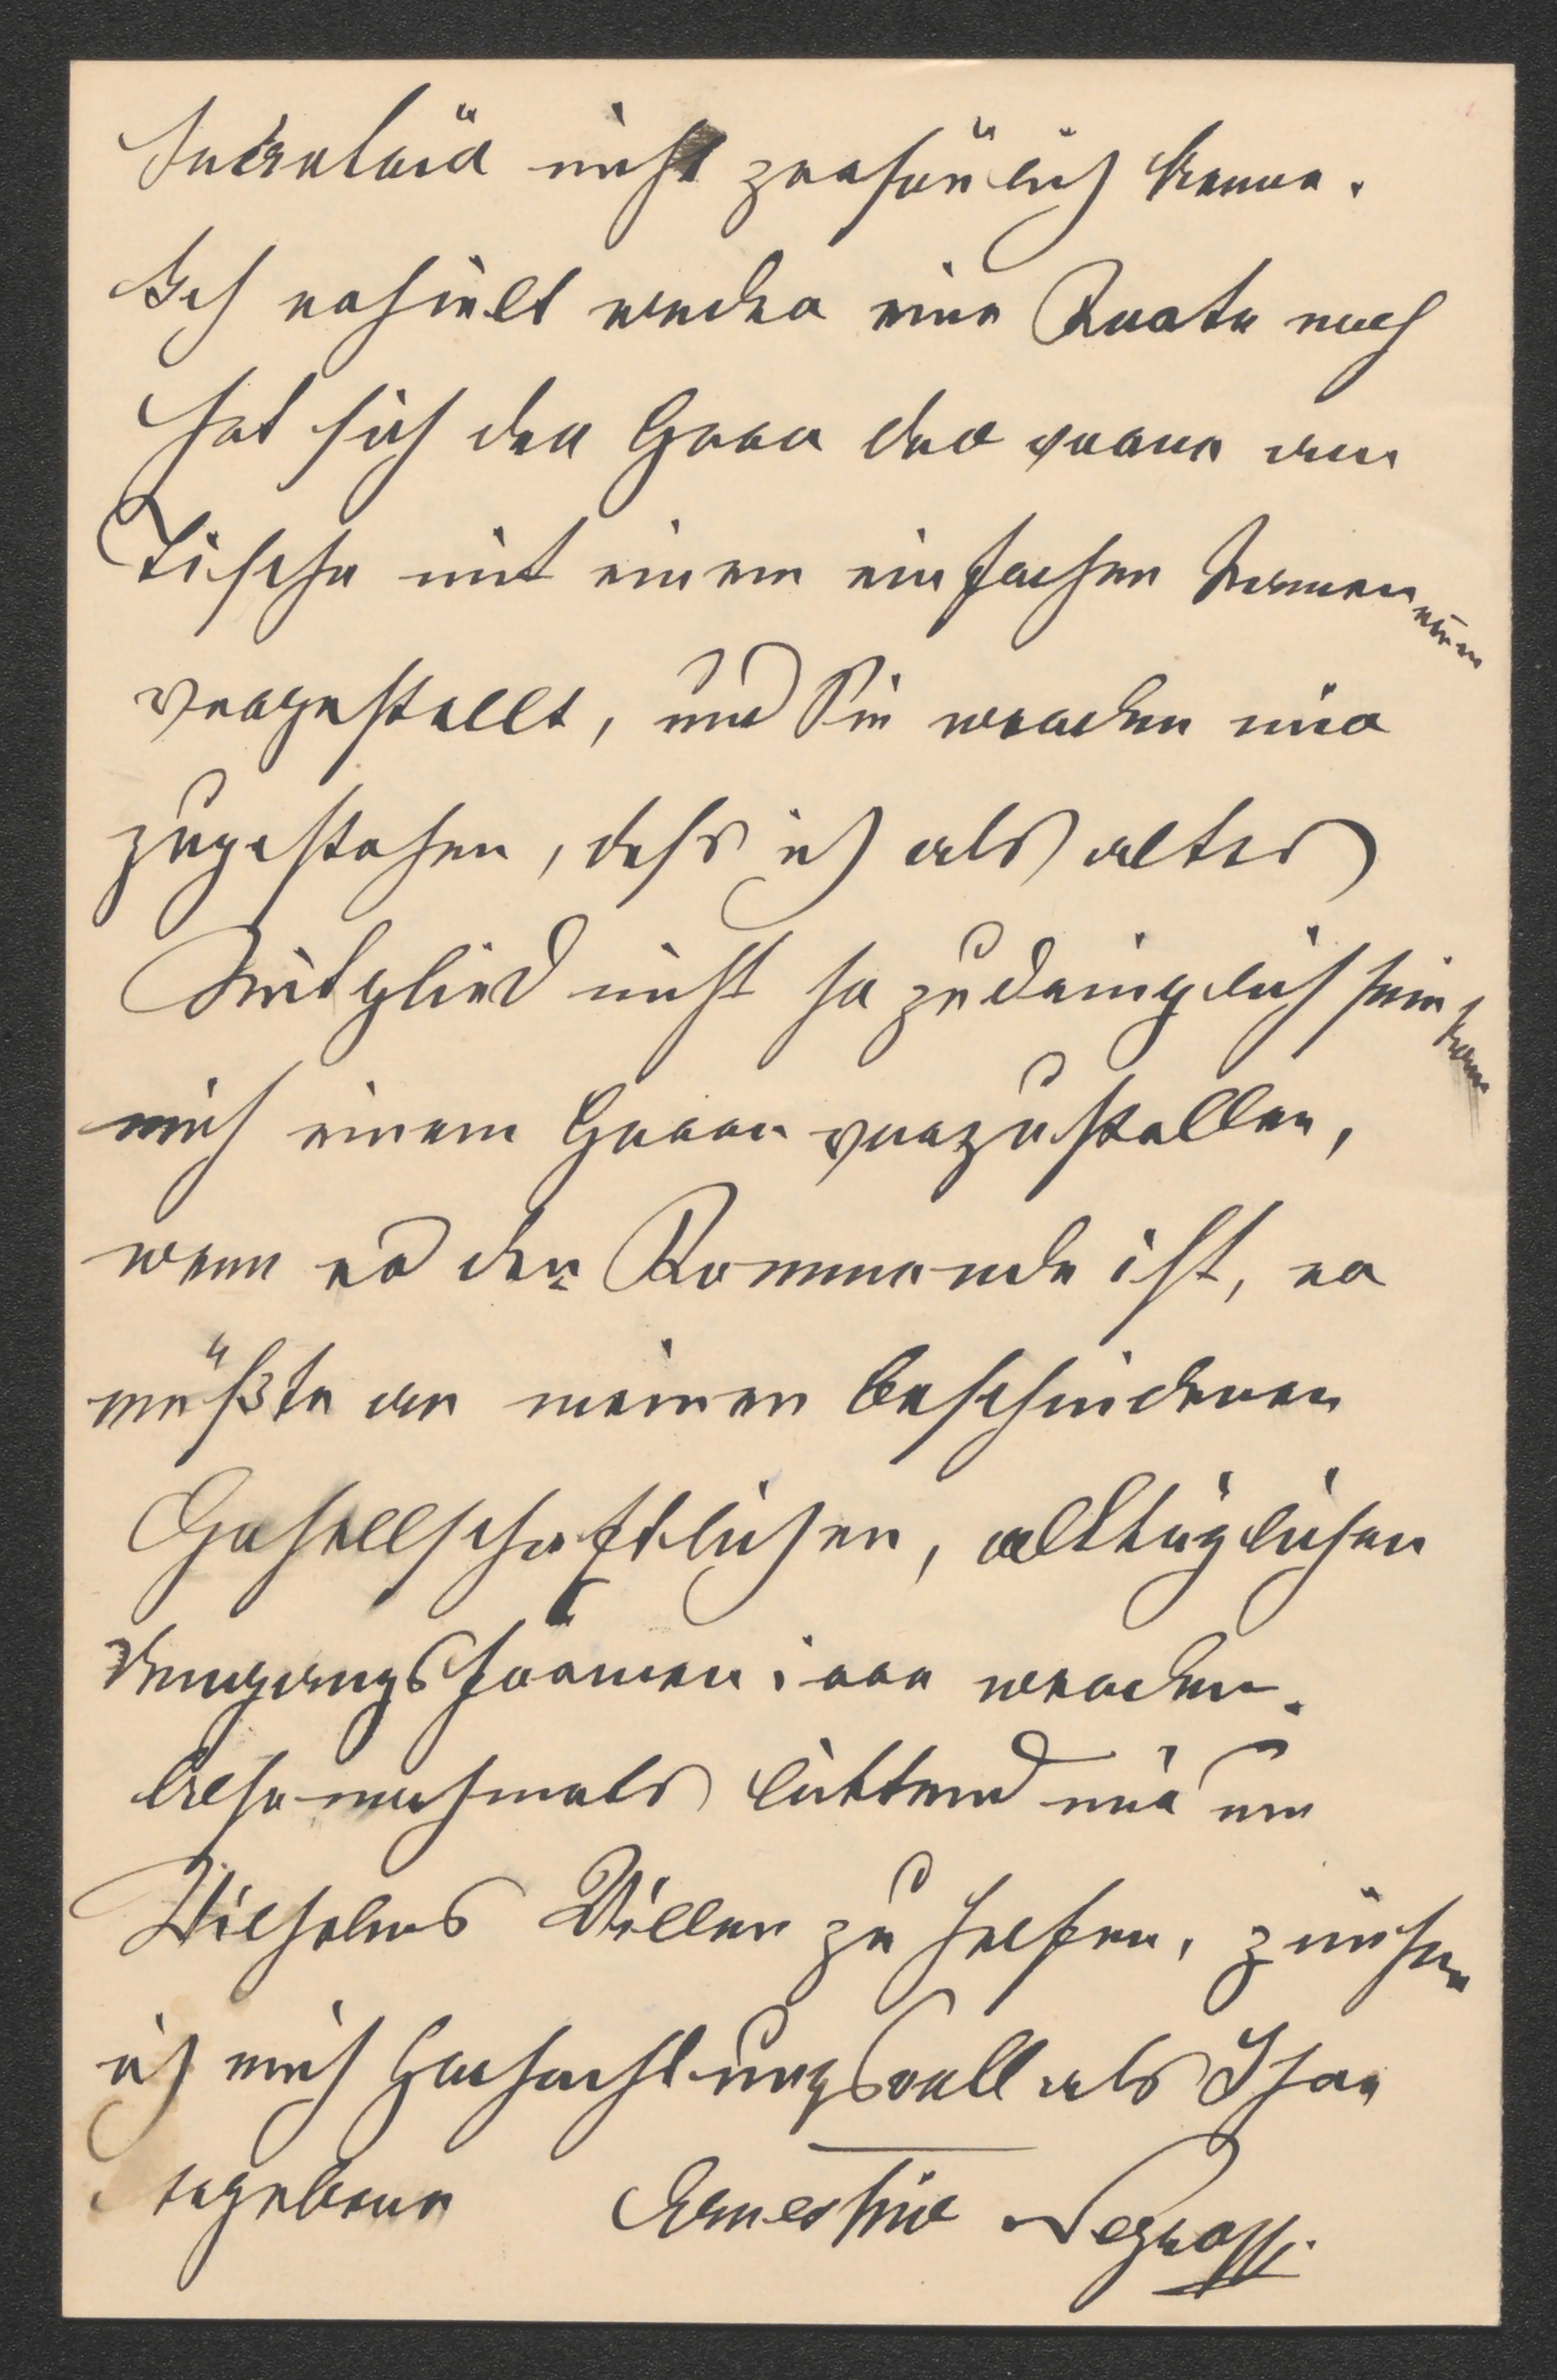 Sekretär nicht persönlich kenne.
Ich erhielt weder eine Karte noch
hat sich der Herr der vorne am
Tische mit einem einfachen Namen nennen
vorgestellt, und Sie werden mir
zugestehen, dass ich als altes
Mitglied nicht so zudringlich sein kann
mich einem Herrn vorzustellen,
wenn es der Kommende ist, er
müßte an meinen bescheidenen
Gesellschaftlichen, alltäglichen
Umgangsformen irre werden.
Also nochmals bittend mir um
Wilhelms Willen zu helfen, zeichne
ich mich Hochachtungsvoll als Ihre
ergebene Ernestine Negrossi